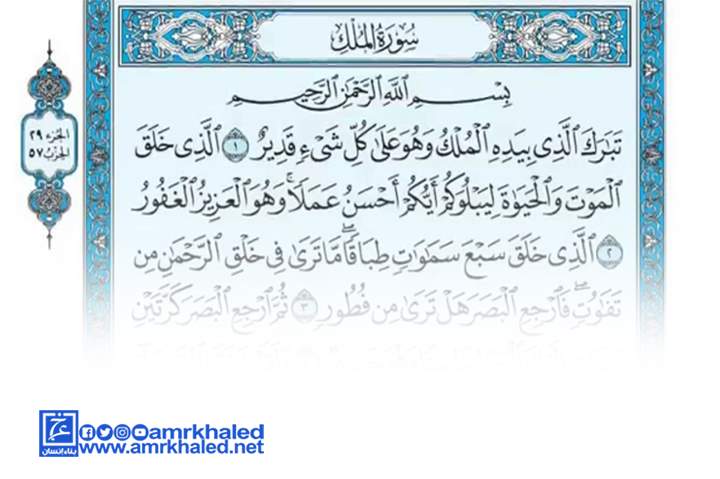 سُورَةُ المُلْكِ
الجزء ٢٩
الحزب ٥٧
بِسْمِ ٱللَّهِ ٱلرَّحْمَٰنِ ٱلرَّحِيمِ
تَبَٰرَكَ ٱلَّذِى بِيَدِهِ ٱلْمُلْكُ وَهُوَ عَلَىٰ كُلِّ شَىْءٍ قَدِيرٌ ١ ٱلَّذِى خَلَقَ
ٱلْمَوْتَ وَٱلْحَيَوٰةَ لِيَبْلُوَكُمْ أَيُّكُمْ أَحْسَنُ عَمَلًا ۚ وَهُوَ ٱلْعَزِيزُ ٱلْغَفُورُ
٢ ٱلَّذِى خَلَقَ سَبْعَ سَمَٰوَٰتٍ طِبَاقًا ۖ مَّا تَرَىٰ فِى خَلْقِ ٱلرَّحْمَٰنِ مِن
تَفَٰوُتٍ ۖ فَٱرْجِعِ ٱلْبَصَرَ هَلْ تَرَىٰ مِن فُطُورٍ ٣ ثُمَّ ٱرْجِعِ ٱلْبَصَرَ كَرَّتَيْنِ
بناء إنسان
amrkhaled
www.amrkhaled.net